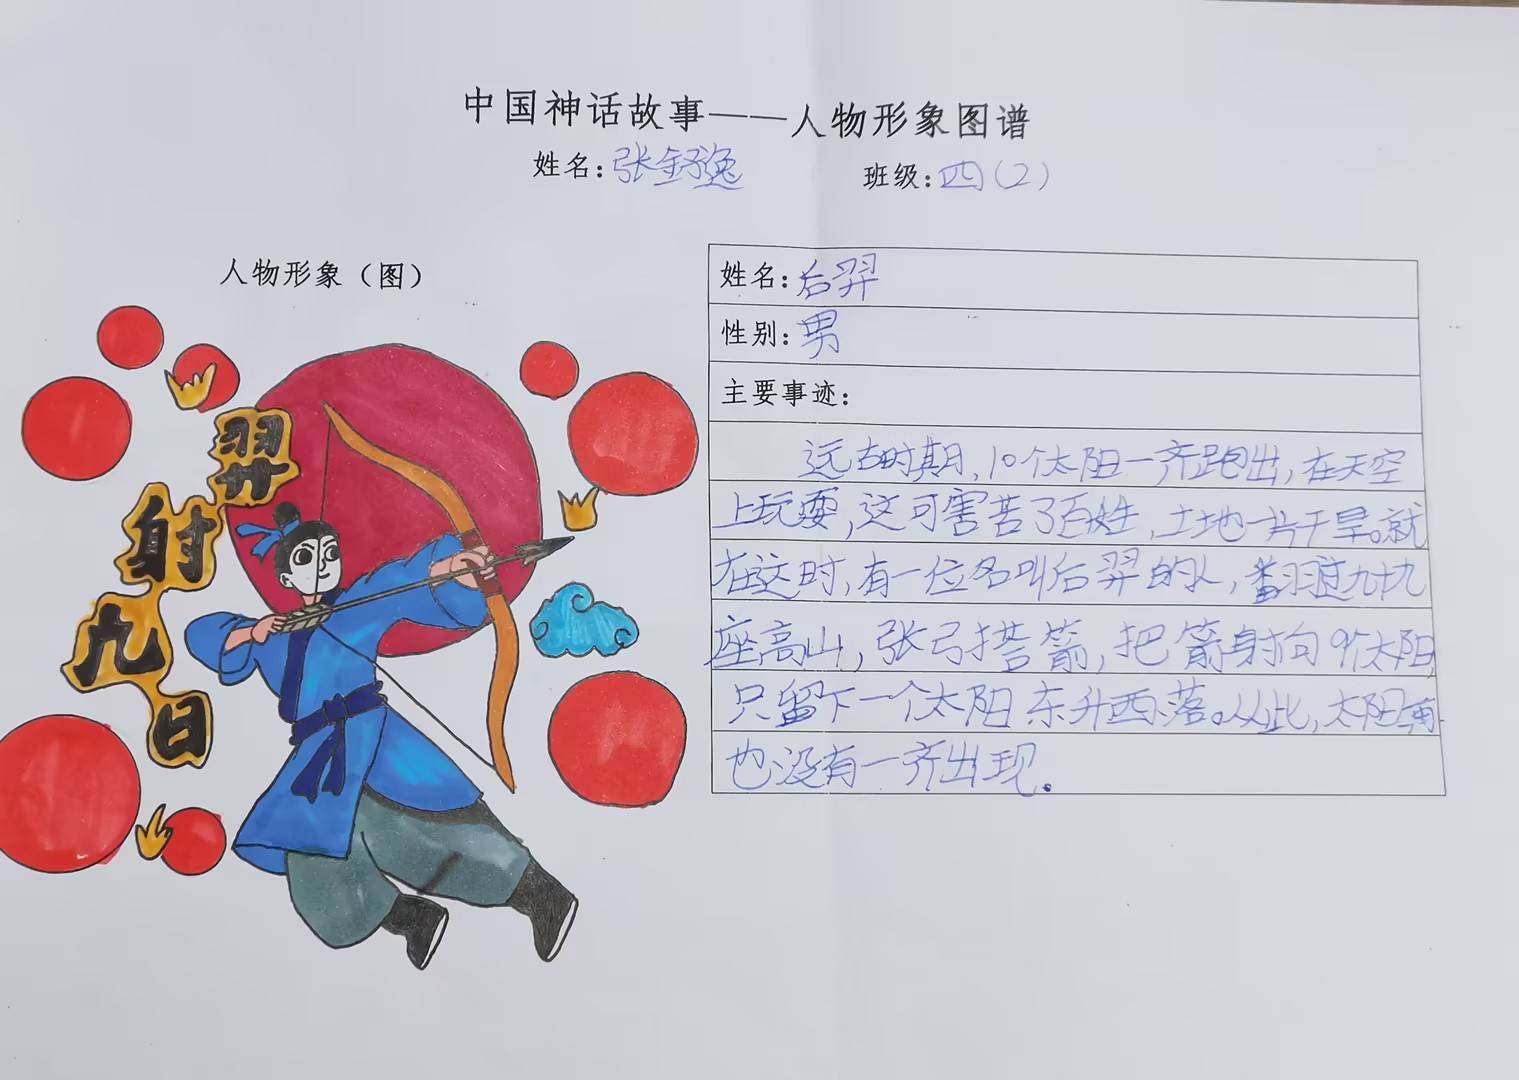 中国神话故事——人物形象图谱
姓名:张舒逸 班级:四(2)
人物形象(图)
羿射九日
姓名:后羿
性别:男
主要事迹:
远古时期,10个太阳一齐跑出,在天空
上玩耍,这可害苦了百姓,土地一片干旱。就
在这时,有一位名叫后羿的人,翻过九十九
座高山,张弓搭箭,把箭射向9个太阳,
只留下一个太阳东升西落。从此,太阳再
也没有一齐出现.